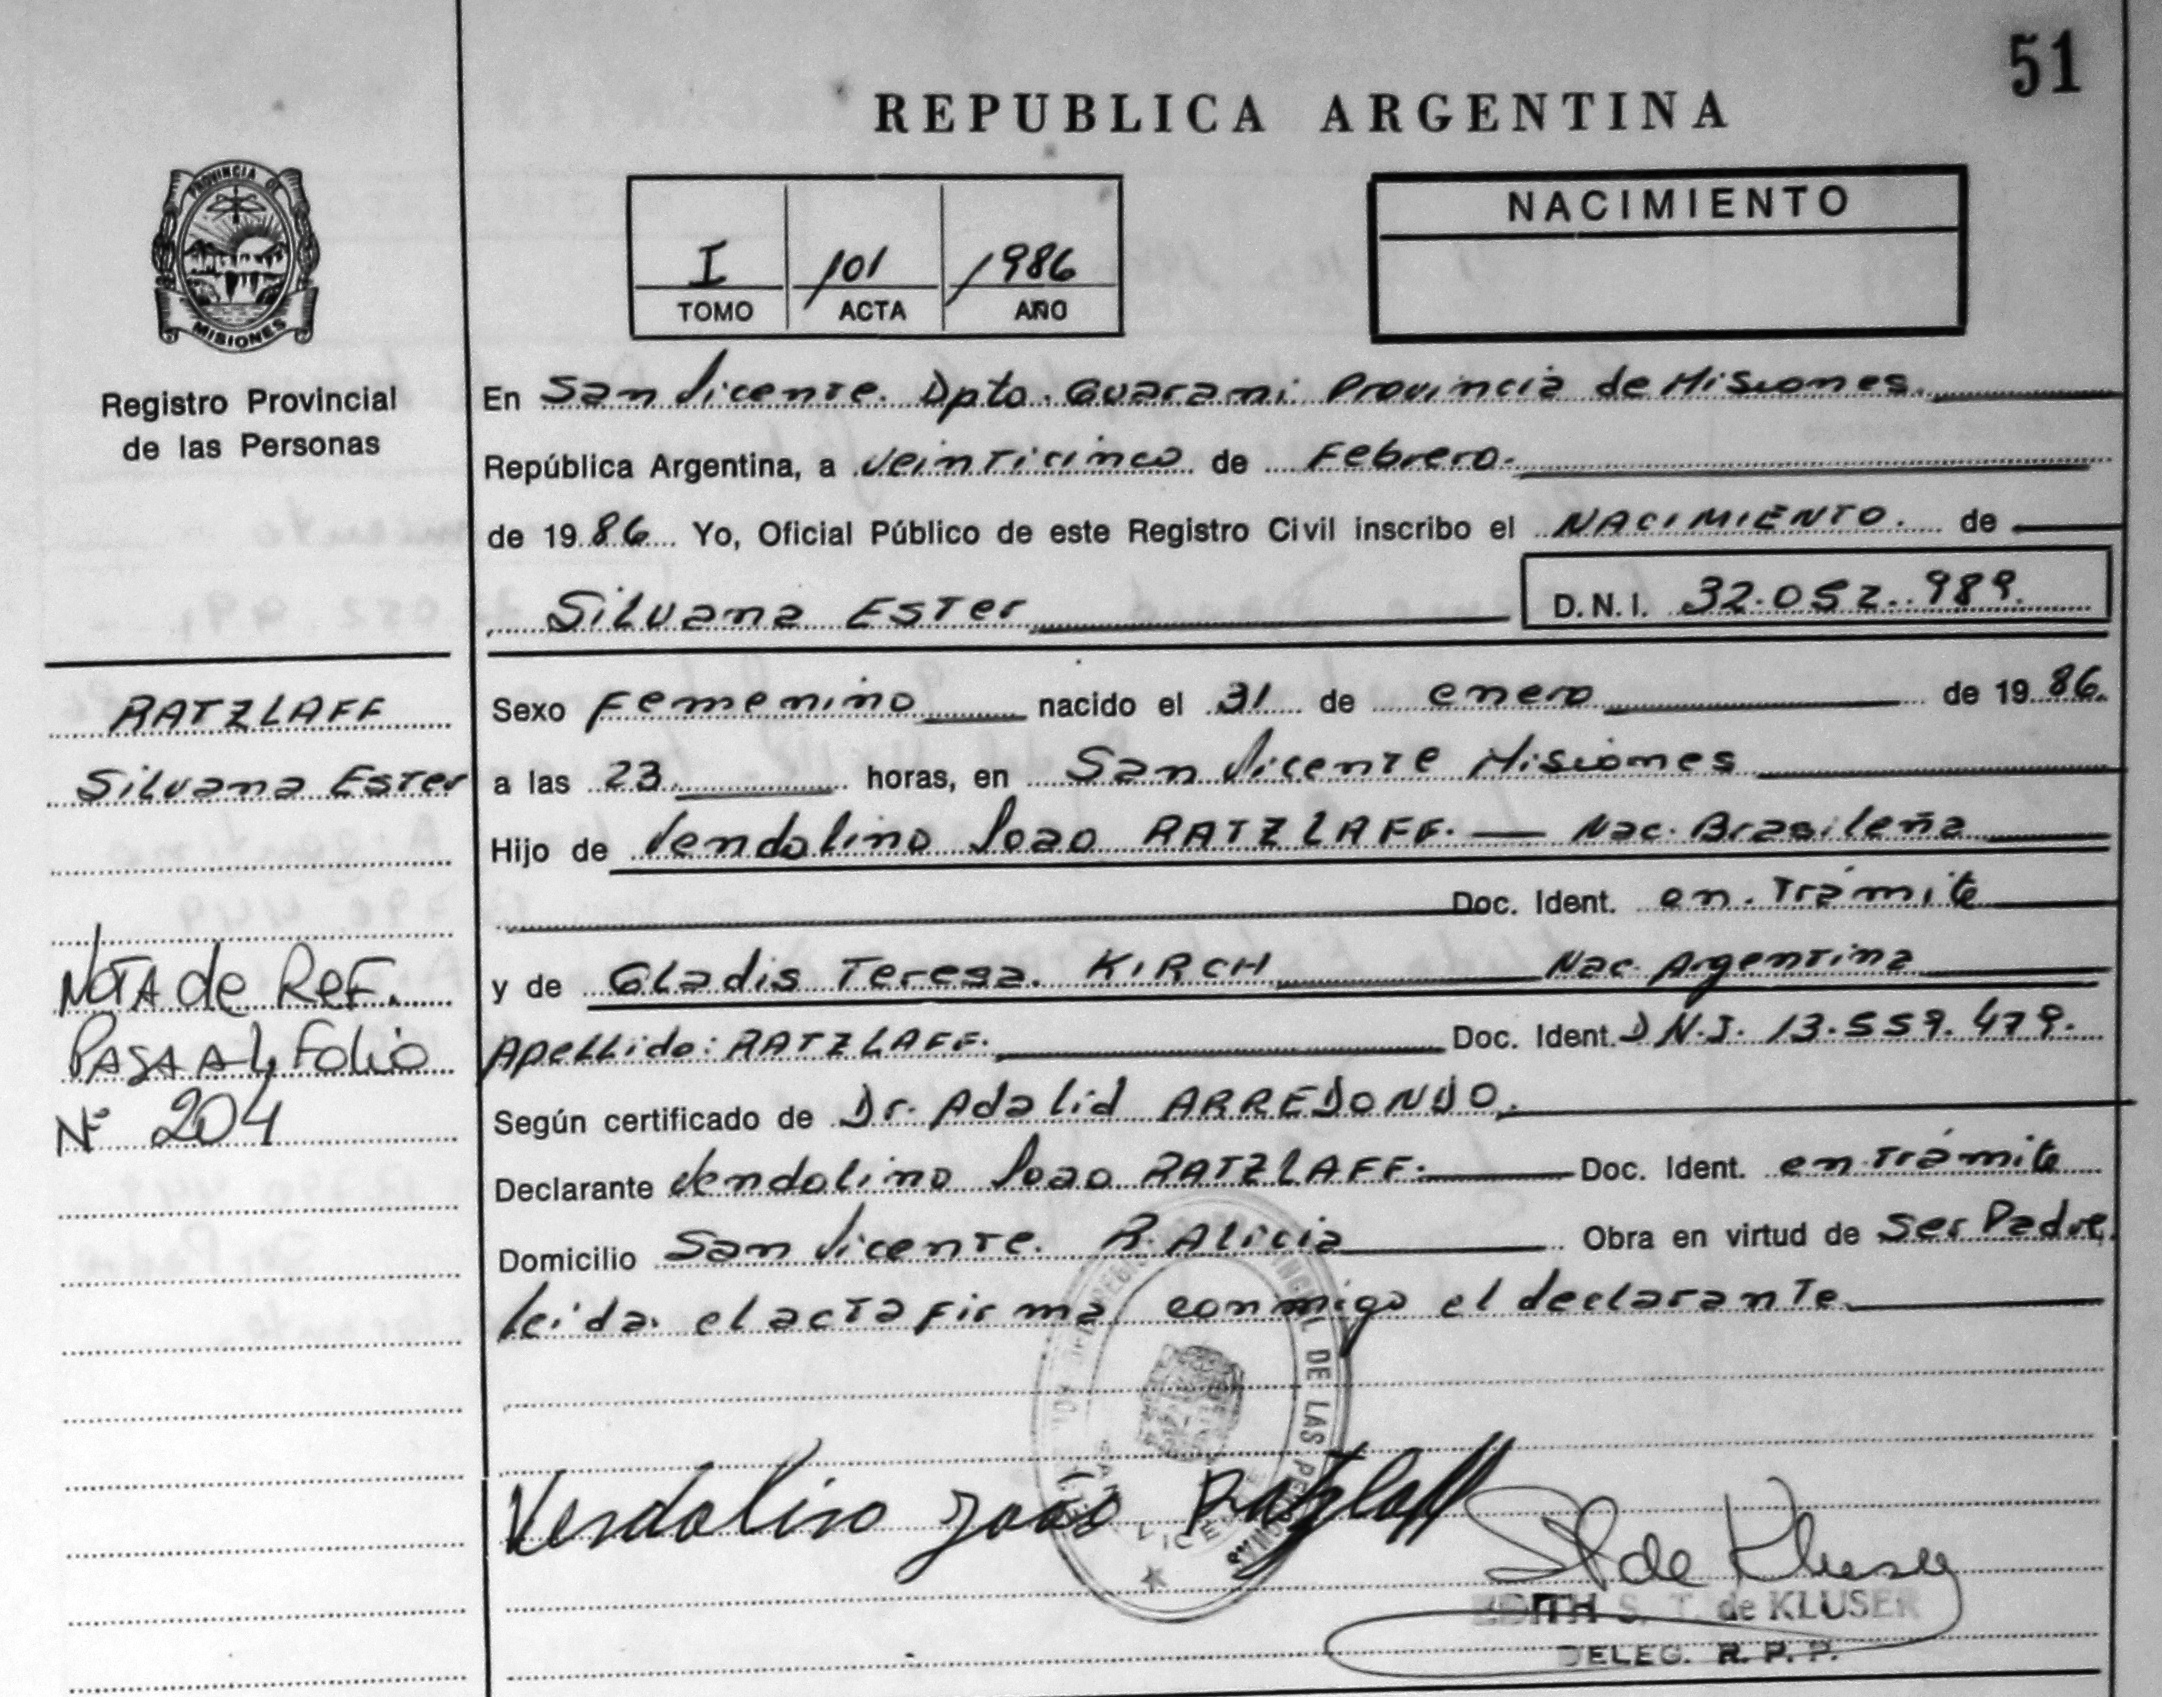 51
REPUBLICA ARGENTINA
PROVINCIA DE
MISIONES
Registro Provincial
de las Personas
I 101 1986
TOMO ACTA AÑO
NACIMIENTO
En San Vicente. Dpto. Guarani Provincia de Misiones.
República Argentina, a veinticinco de Febrero.
de 1986 Yo, Oficial Público de este Registro Civil inscribo el NACIMIENTO. de
Silvana Ester D.N.I. 32.052.989.
RATZLAFF
Silvana Ester
NOTA de REF.
PASA AL Folio
Nº 204
Sexo Femenino nacido el 31 de enero de 1986.
a las 23 horas, en San Vicente Misiones
Hijo de Vendolino Joao RATZLAFF. — Nac. Brasileña
Doc. Ident. en. Trámite
y de Gladis Teresa. KIRCH Nac. Argentina
Apellido: RATZLAFF. Doc. Ident. D.N.I. 13.559.479.
Según certificado de Dr. Adalid ARREDONDO.
Declarante Vendolino Joao RATZLAFF. Doc. Ident. en Trámite
Domicilio San Vicente. R. Alicia Obra en virtud de Ser Padre.
leida. el acta firma conmigo el declarante
Vendolino Joao Ratzlaff
de Kluser
EDITH S. T. de KLUSER
DELEG. R. P. P.